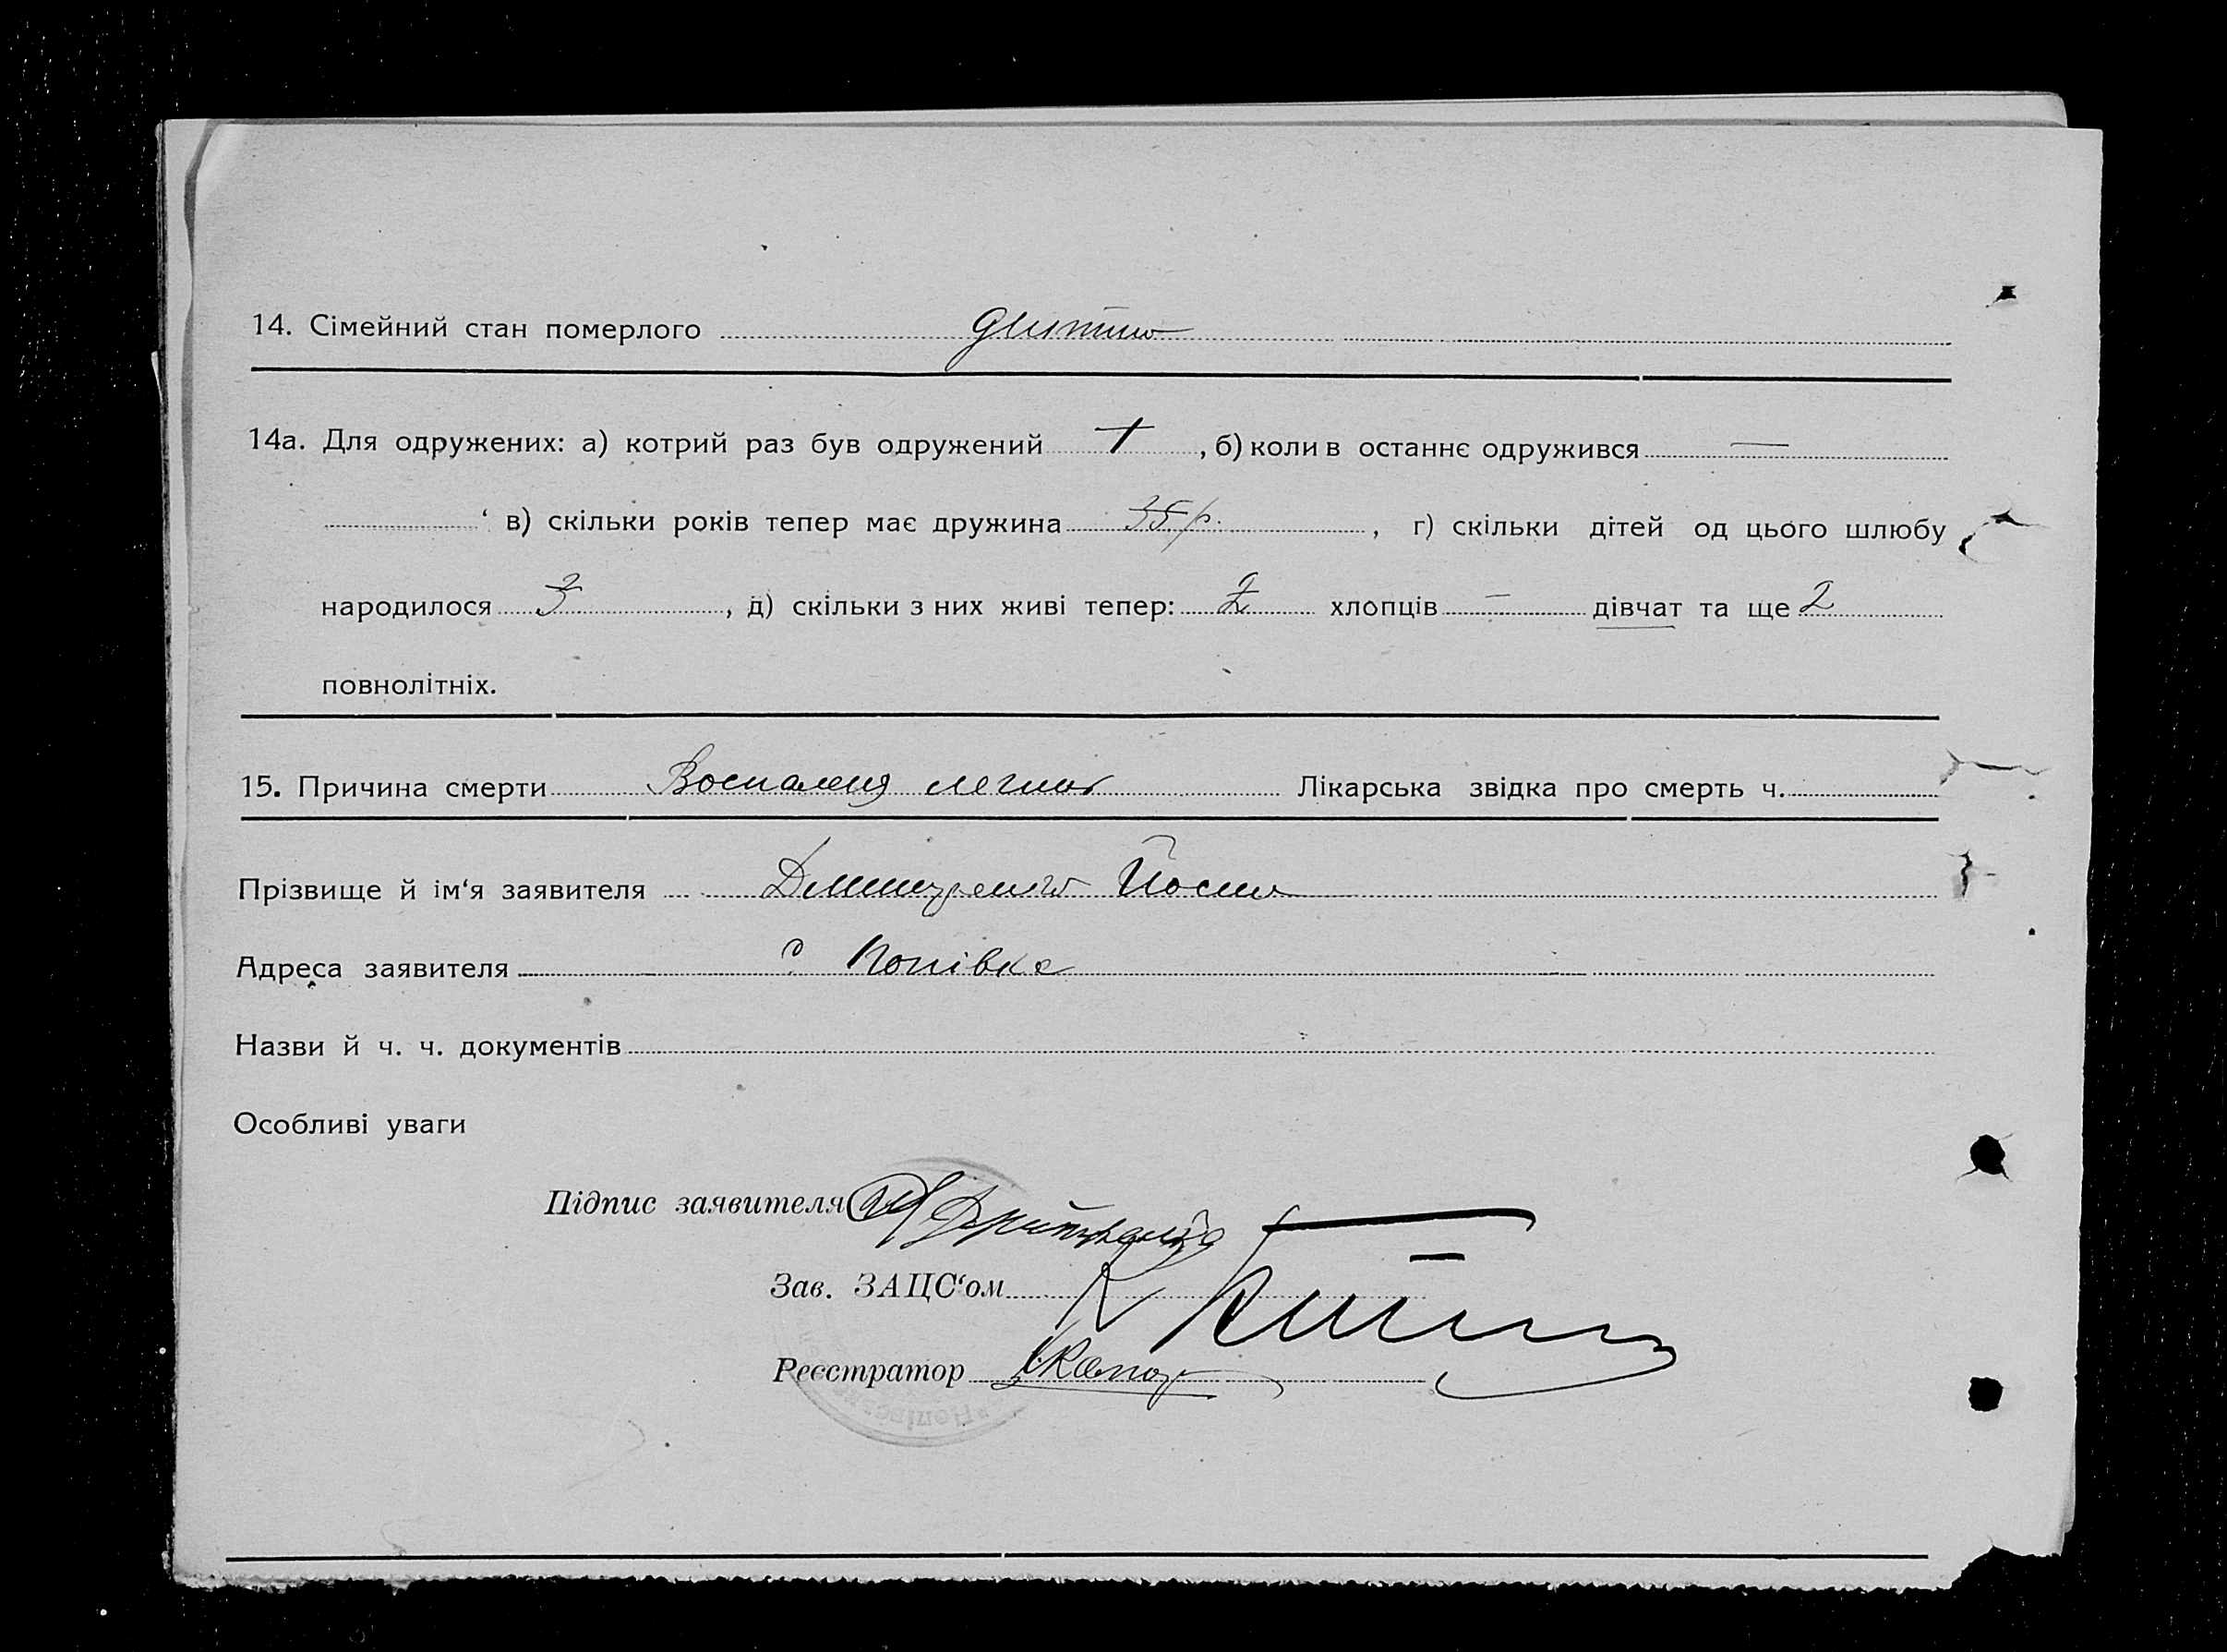 14. Сімейний стан померлого дитина
14а. Для одружених: а) котрий раз був одружений 1, б) коли в останнє одружився —
‘ в) скільки років тепер має дружина 35 р., г) скільки дітей од цього шлюбу
народилося 3, д) скільки з них живі тепер: 2 хлопців — дівчат та ще 2
повнолітніх.
15. Причина смерти Воспаления легких Лікарська звідка про смерть ч.
Прізвище й ім‘я заявителя Дмитренко Йосип
Адреса заявителя с Попівка
Назви й ч. ч. документів
Особливі уваги
Підпис заявителя Дмитренко
Зав. ЗАЦС‘ом
Реєстратор